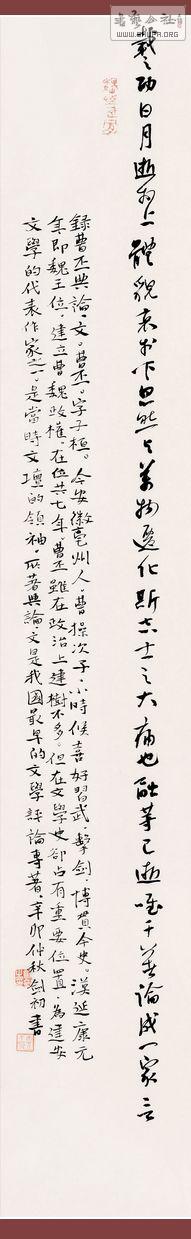 之功日月逝于上體貌衰于下忽然与萬物遷化斯志士之大痛也融等已逝唯干著論成一家言
錄曹丕典論·文。曹丕。字子桓。今安徽亳州人。曹操次子。小時候喜好習武·擊劍·博貫今史。漢延康元
年即魏王位。建立曹魏政權。在位共七年。曹丕雖在政治上建樹不多。但在文學史卻占有重要位置。為建安
文學的代表作家之一。是當時文壇的領袖。所著典論·文是我國最早的文學評論專著。辛卯仲秋劍初書